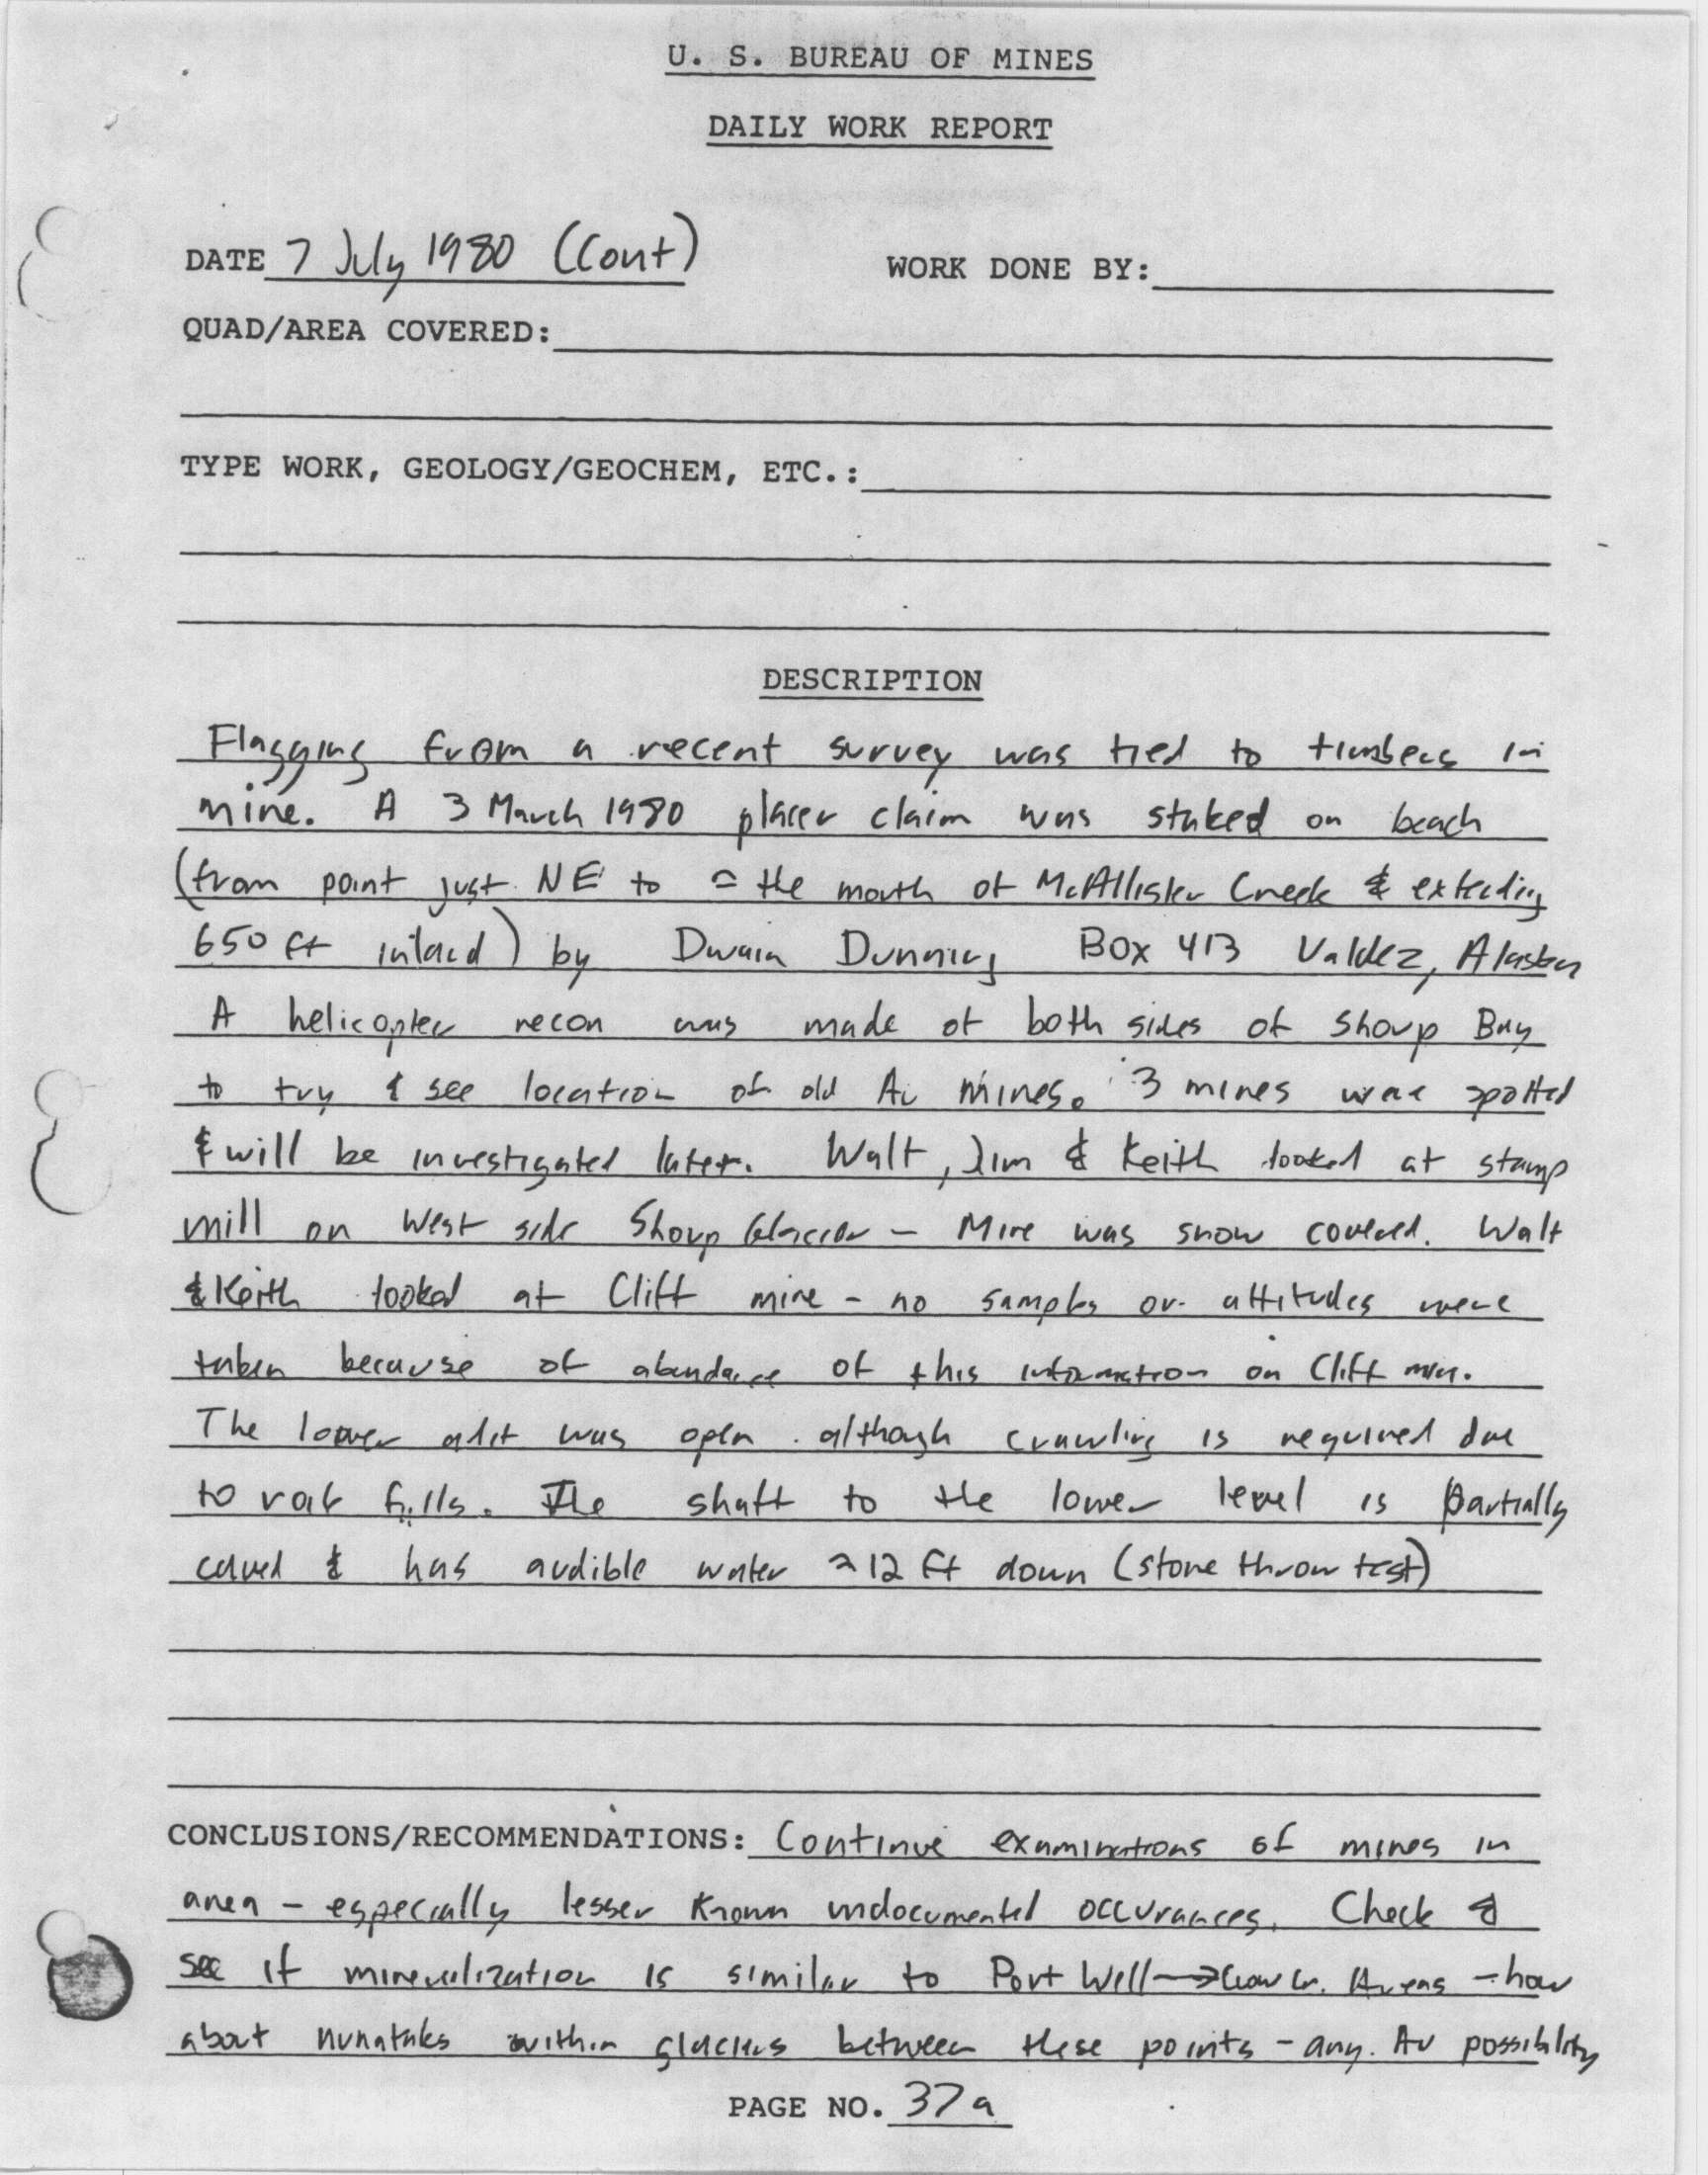 U. S. BUREAU OF MINES
DAILY WORK REPORT
DATE 7 July 1980 (Cont) WORK DONE BY:
QUAD/AREA COVERED:
TYPE WORK, GEOLOGY/GEOCHEM, ETC.:
DESCRIPTION
Flagging from a recent survey was tied to timbers in
mine. A 3 March 1980 placer claim was staked on beach
(from point just NE to ≈ the mouth of McAllister Creek & extending
650 ft inland) by Dwain Dunning Box 413 Valdez, Alaska
A helicopter recon was made of both sides of Shoup Bay
to try & see location of old Au mines. 3 mines were spotted
& will be investigated later. Walt, Jim & Keith looked at stamp
mill on West side Shoup Glacier - Mine was snow covered. Walt
& Keith looked at Cliff mine - no samples or attitudes were
taken because of abundance of this information on Cliff min.
The lower adit was open although crawling is required due
to rock falls. The shaft to the lower level is partially
caved & has audible water ≈ 12 ft down (stone throw test)
CONCLUSIONS/RECOMMENDATIONS: Continue examinations of mines in
area - especially lesser known undocumented occurances. Check &
see if mineralization is similar to Port Well → Crow Cr. Areas - how
about nunataks within glaciers between these points - any Au possibility
PAGE NO. 37a